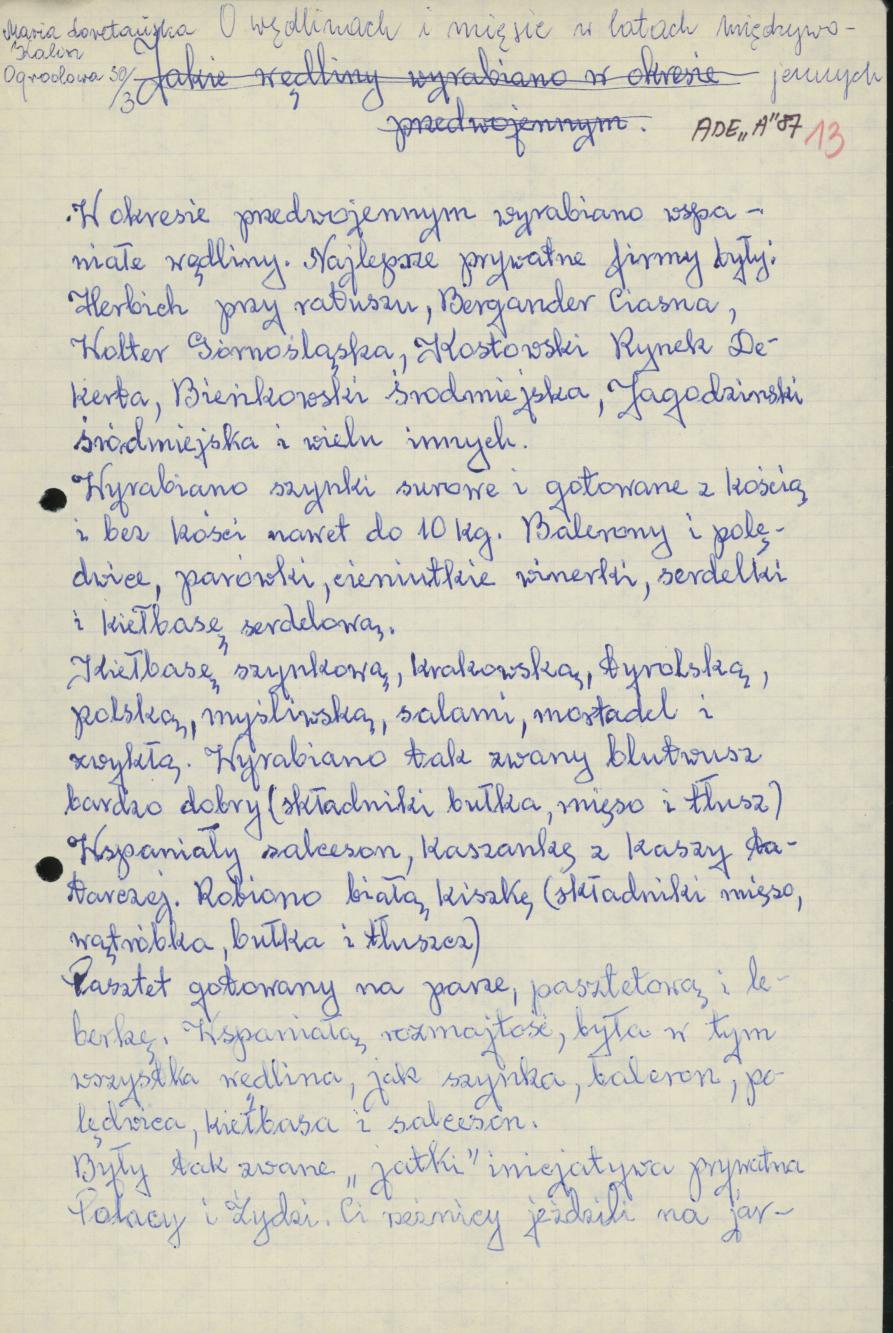 Maria Loretańska O wędlinach i mięsie w latach międzywo-
Kalisz
Ogrodowa 30/3 Jakie wędliny wyrabiano w okresie jennych
przedwojennym. ADE„A"87 13
W okresie przedwojennym wyrabiano wspa-
niałe wędliny. Najlepsze prywatne firmy były:
Herbich przy ratuszu, Bergander Ciasna,
Wolter Górnośląska, Kostowski Rynek De-
kerta, Bieńkowski Środmiejska, Jagodzinski
śródmiejska i wielu innych.
Wyrabiano szynki surowe i gotowane z kością
i bez kości nawet do 10 kg. Balerony i polę-
dwice, parówki, cieniutkie winerki, serdelki
i kiełbasę serdelową.
Kiełbasę szynkową, krakowską, tyrolską,
polską, myśliwską, salami, mortadel i
zwykłą. Wyrabiano tak zwany blutwusz
bardzo dobry (składniki bułka, mięso i tłusz)
Wspaniały salceson, kaszankę z kaszy ta-
tarczej. Robiono białą kiszkę (składniki mięso,
wątróbka, bułka i tłuszcz)
Pasztet gotowany na parze, pasztetową i le-
berkę. Wspaniałą rozmajtość, była w tym
wszystka wędlina, jak szynka, baleron, po-
lędwica, kiełbasa i salceson.
Były tak zwane „jatki" inicjatywa prywatna
Polacy i Żydzi. Ci rzeźnicy jeździli na jar-